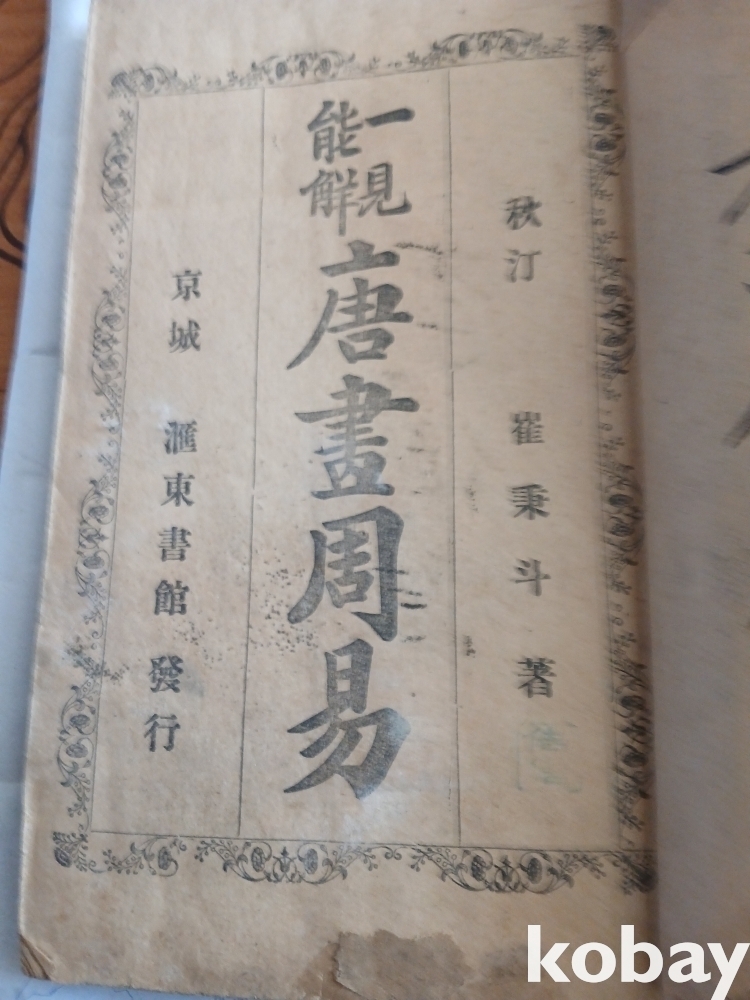 秋汀 崔秉斗 著
一見能解
唐畫周易
京城 滙東書館 發行
kobay